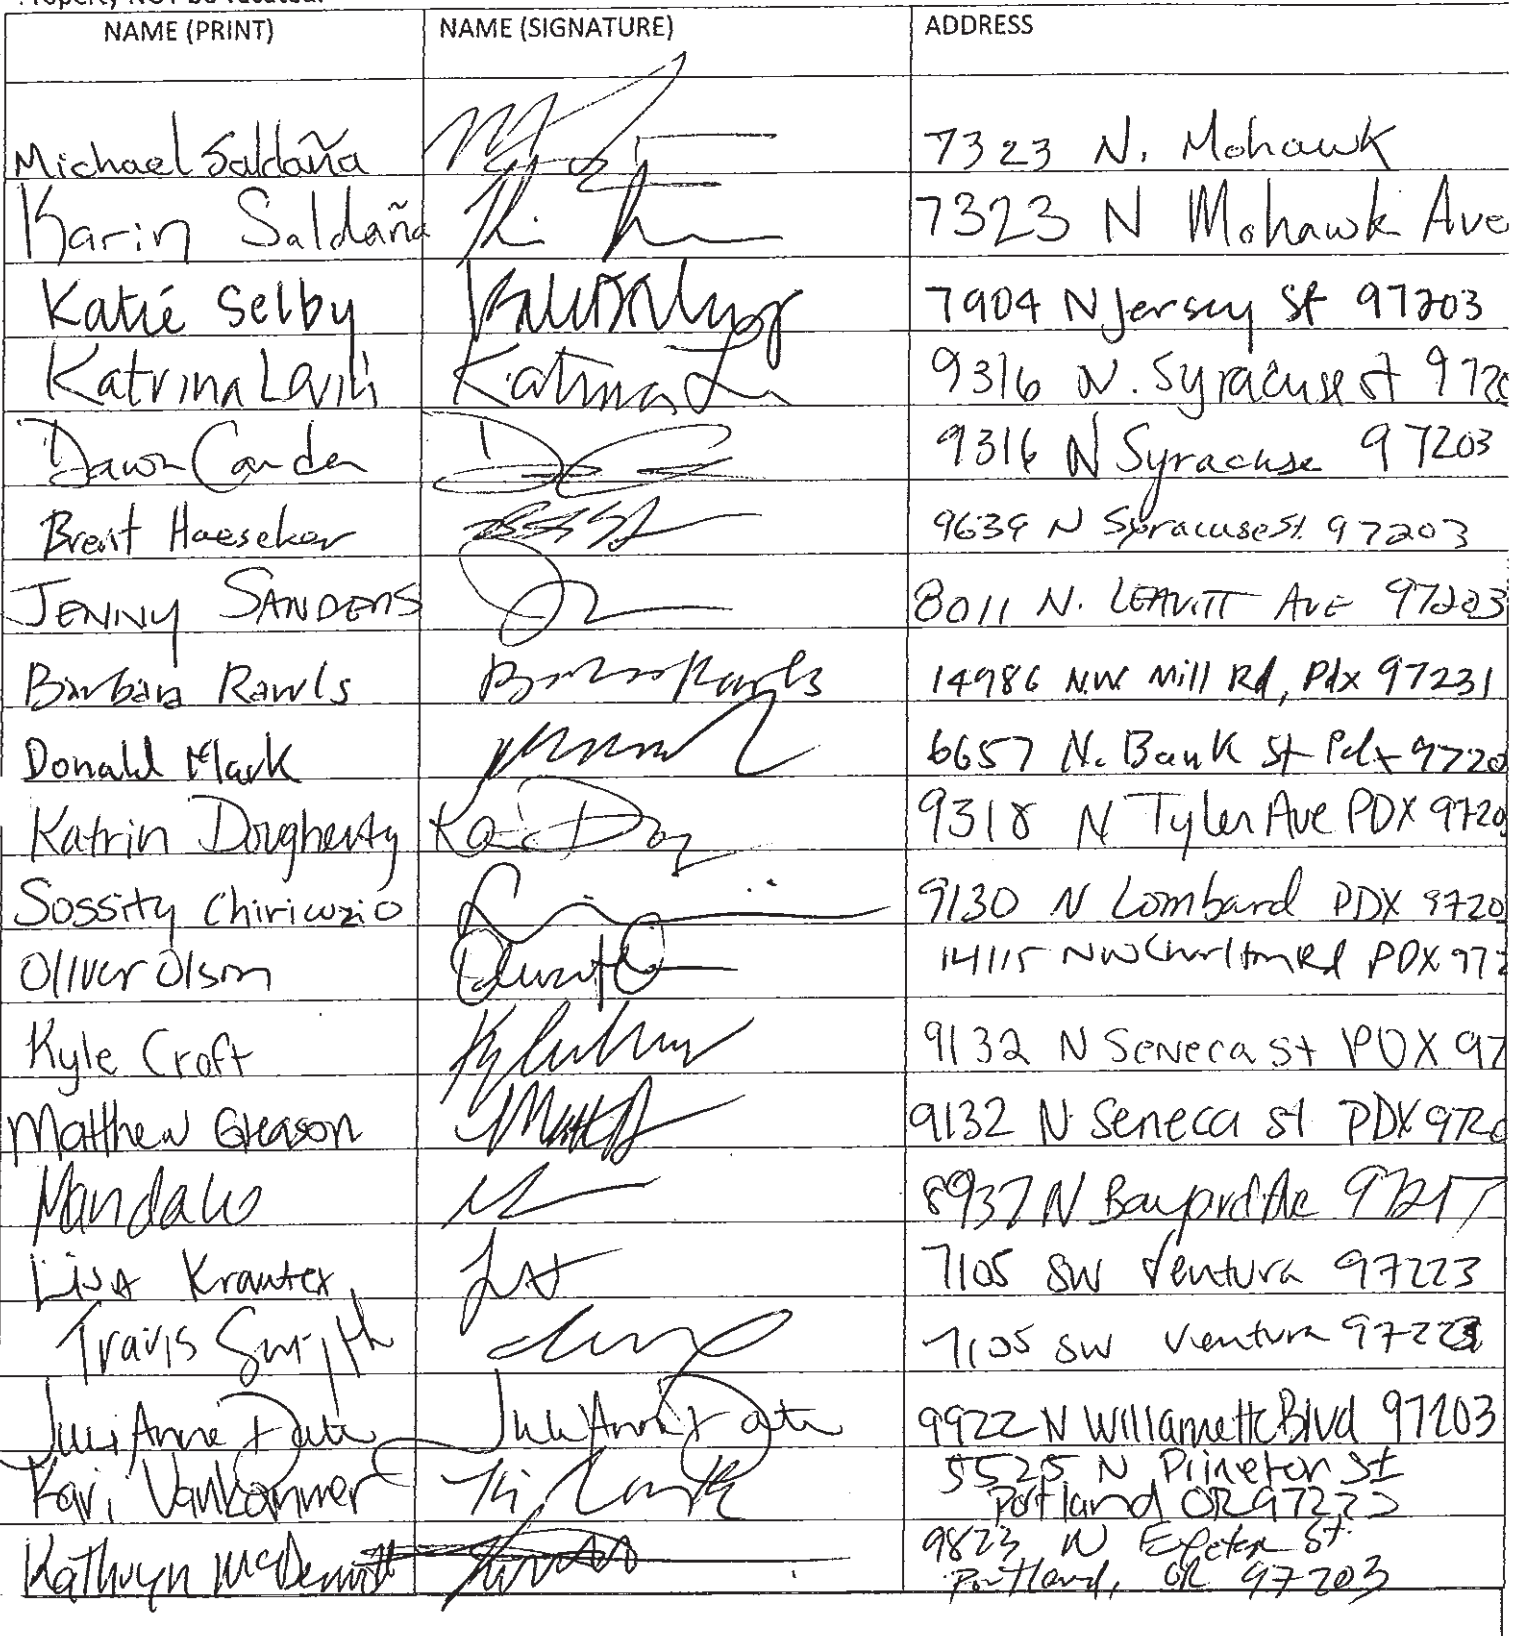 Property NOT be vacated.
NAME (PRINT) NAME (SIGNATURE) ADDRESS
Michael Saldaña 7323 N. Mohawk
Karin Saldaña 7323 N Mohawk Ave
Katie Selby 7904 N Jersey St 97203
Katrina Katrina 9316 N. Syracuse st 972
Dawn 9316 N Syracuse 97203
Brent Haeseker 9639 N Syracuse St. 97203
JENNY SANDERS 8011 N. LEAVITT AVE 97203
Barbara Rawls Barbara Rawls 14986 N.W. Mill Rd, Pdx 97231
Donald Mack 6657 N. Bank St Pdx 9720
Katrin Dougherty 9318 N Tyler Ave PDX 9720
Sossity Chiricuzio 9130 N Lombard PDX 9720
Oliver Olson 14115 NW Charlton Rd PDX 972
Kyle Croft 9132 N Seneca st PDX 97
Matthew Gleason 9132 N Seneca st PDX 972
8937 N Bayard Ave 97217
Lisa 7105 SW Ventura 97223
Travis Smyth 7105 SW Ventura 97223
Juli Anne Juli Anne 9922 N Willamette Blvd 97203
Kari 5525 N Princeton St
Portland OR
Kathryn McDermott 9823 N St.
Portland, OR 97203